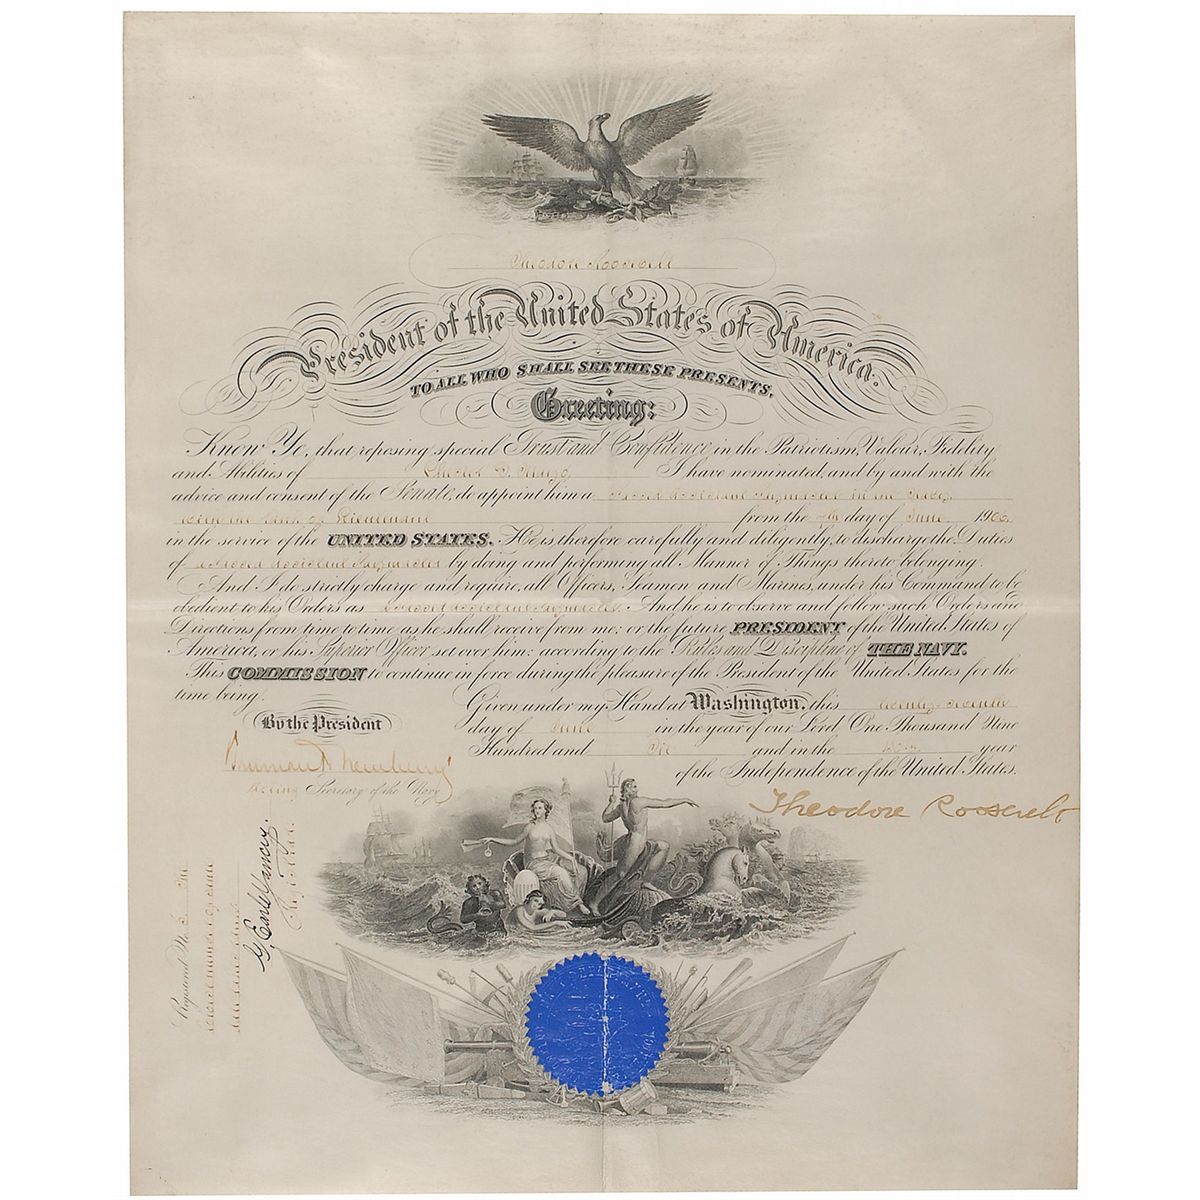 Theodore Roosevelt
President of the United States of America.
TO ALL WHO SHALL SEE THESE PRESENTS,
Greeting:
Know Ye, that reposing special Trust and Confidence in the Patriotism, Valour, Fidelity
and Abilities of I have nominated, and by and with the
advice and consent of the Senate, do appoint him a Passed Assistant Paymaster in the Navy
with the rank of Lieutenant from the day of June, 1906
in the service of the UNITED STATES. He is therefore carefully and diligently, to discharge the Duties
of a Passed Assistant Paymaster by doing and performing all Manner of Things thereto belonging.
And I do strictly charge and require, all Officers, Seamen and Marines, under his Command to be
obedient to his Orders as a Passed Assistant Paymaster. And he is to observe and follow such Orders and
Directions from time to time as he shall receive from me; or the future PRESIDENT of the United States of
America, or his Superior Officer set over him; according to the Rules and Discipline of THE NAVY.
This COMMISSION to continue in force during the pleasure of the President of the United States for the
time being.
Given under my Hand at Washington, this
By the President
day of June in the year of our Lord, One Thousand Nine
Hundred and Six and in the year
of the Independence of the United States.
Truman H. Newberry
Acting Secretary of the Navy
Theodore Roosevelt
Registered No.